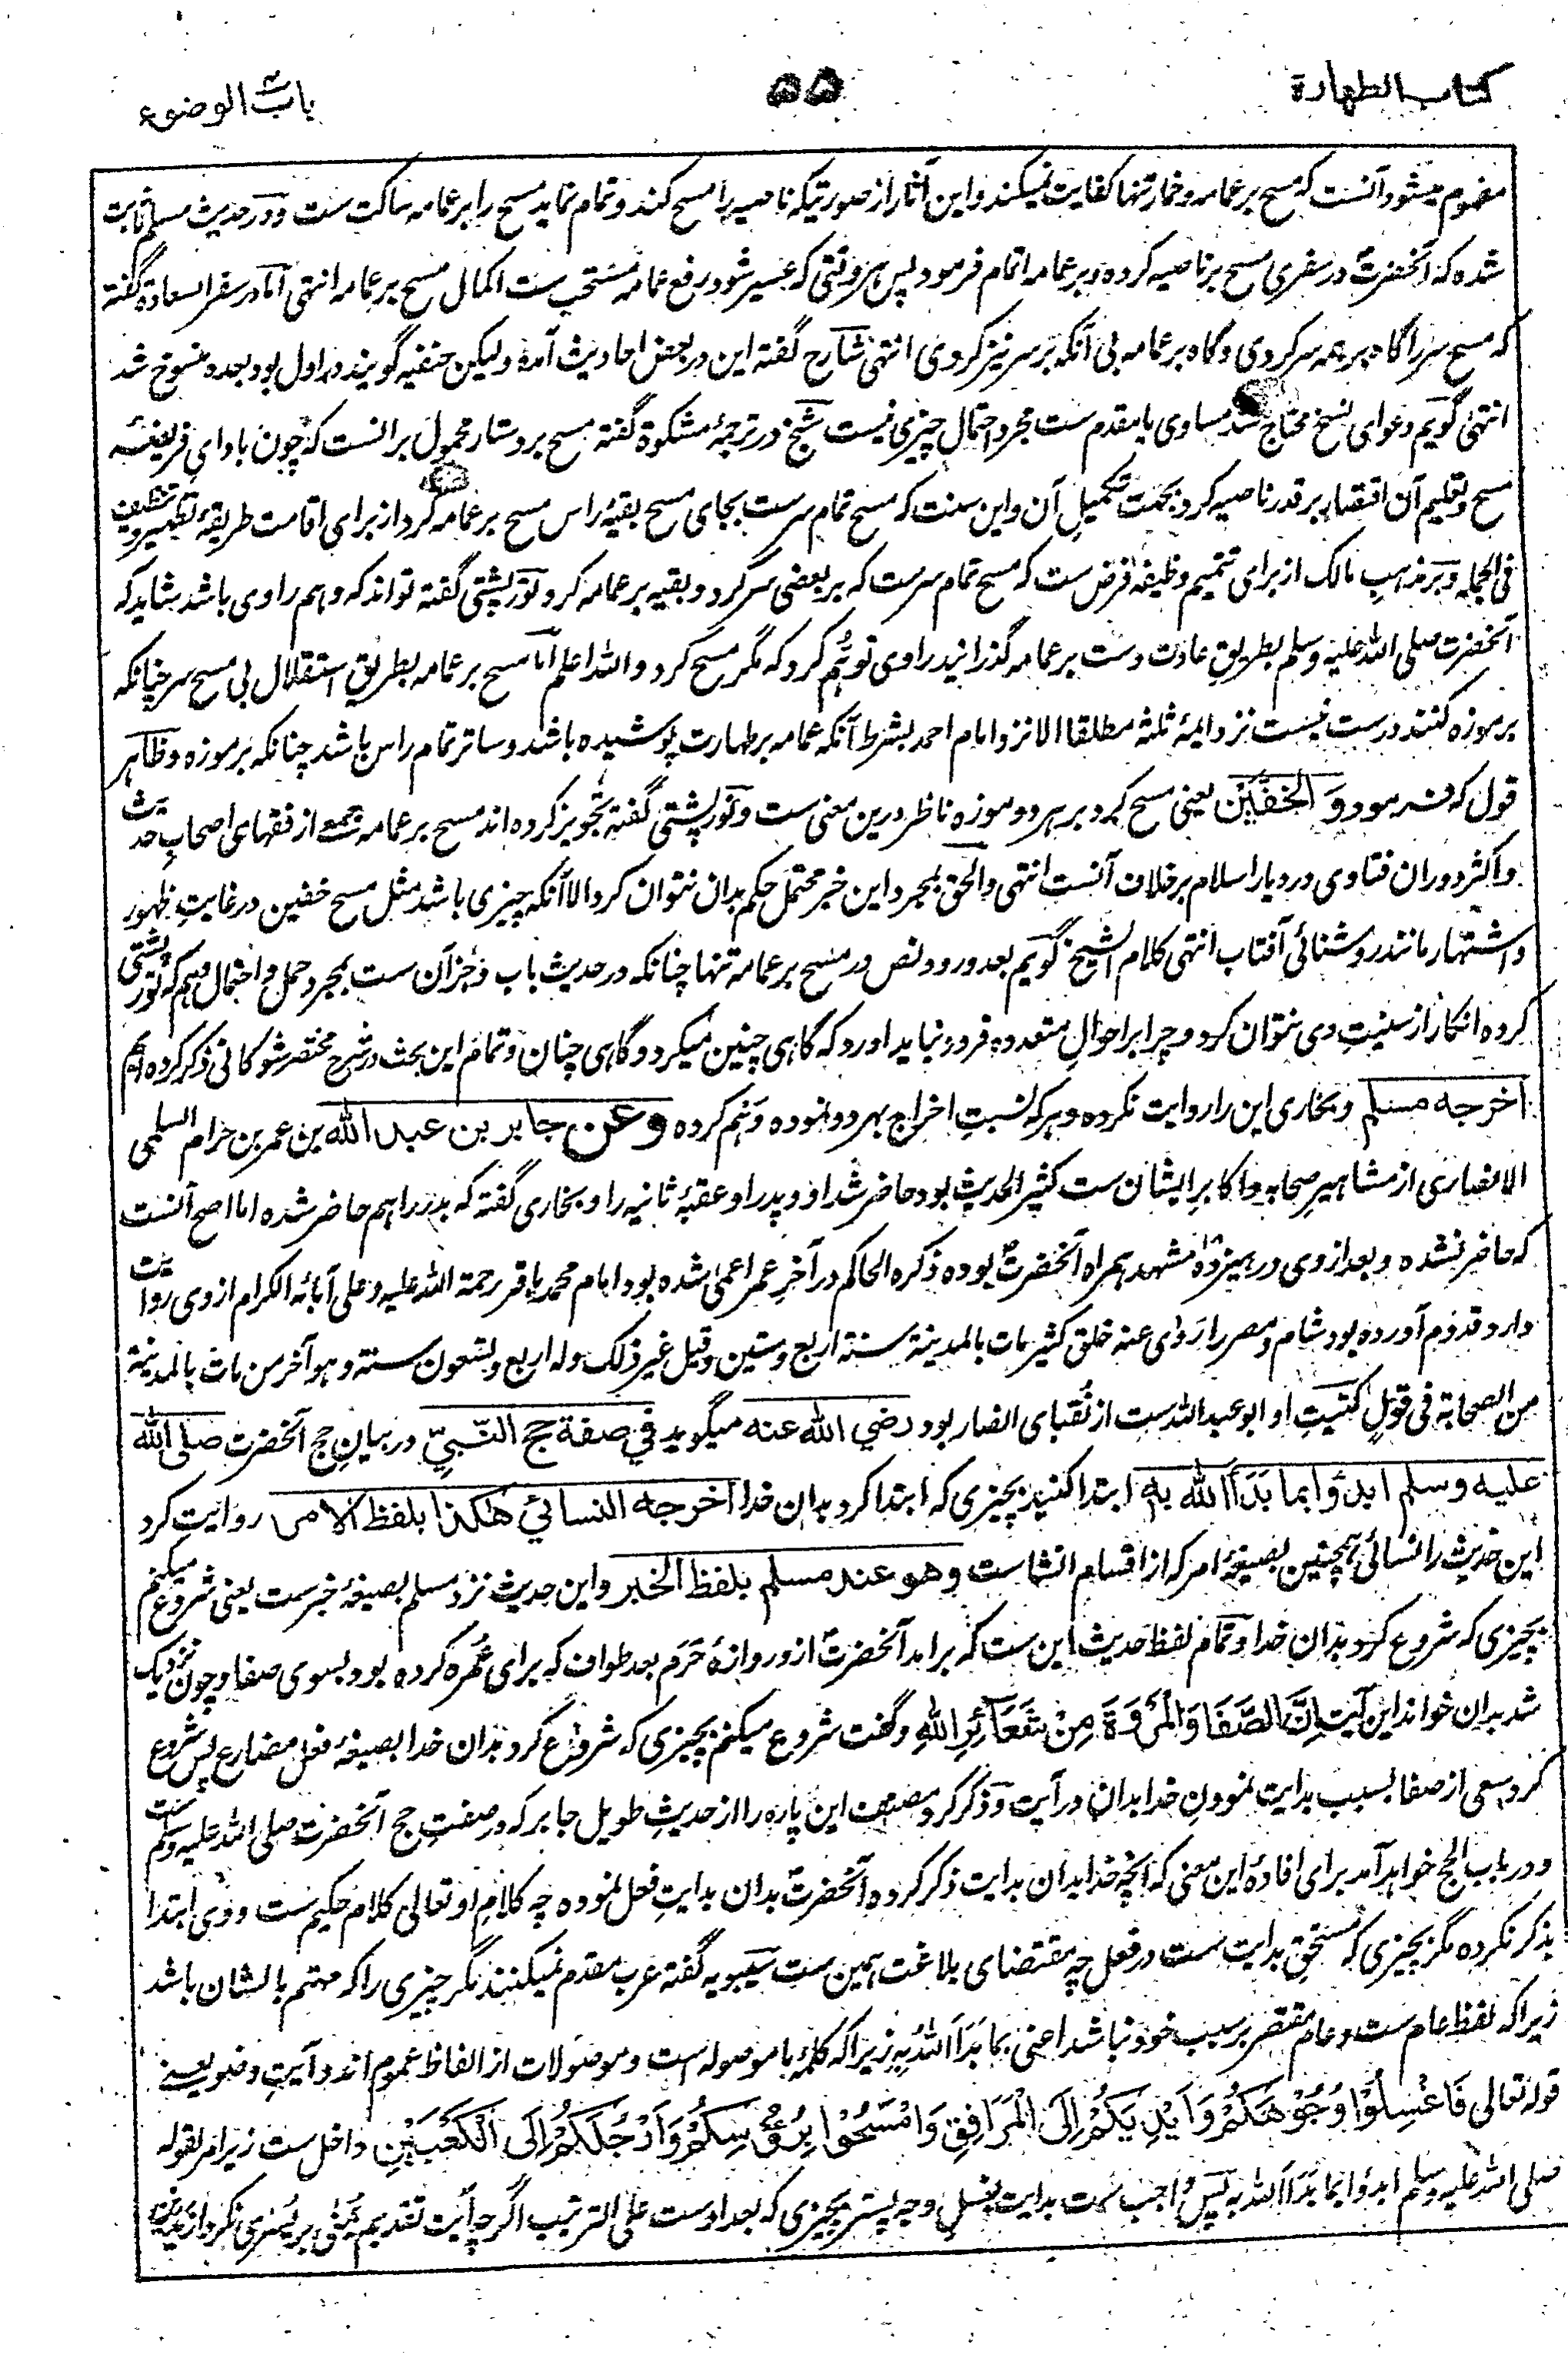 كتاب الطهارة ۵۵ باب الوضوء
مفهوم میشود آنست که مسح بر عمامه و خمار تنها کفایت نمیکند و این آثار از صورتیکه ناصیه را مسح کند و تمام نماید مسح را بر عمامه ساکت ست و در حدیث مسلم ثابت
شده که آنحضرتؐ در سفری مسح بر ناصیه کرده و بر عمامه اتمام فرمود پس هر وقتی که عسیر شود رفع عمامه مستحب ست اکمال مسح بر عمامه انتهی اما در سفر السعادة گفته
که مسح سر را گاه بر همه سر کردی و گاه بر عمامه بی آنکه بر سر نیز کردی انتهی شارح گفته این در بعض احادیث آمده ولیکن حنفیه گویند در اول بود بعده منسوخ شد
انتهی گویم دعوای نسخ محتاج مساوی یا مقدم ست مجرد احتمال چیزی نیست شیخ در ترجمهٔ مشکوة گفته مسح بر دستار محمول بر آنست که چون با دای فریضه
مسح و تعلیم آن اقتصار بر قدر ناصیه کرد بجهت تکمیل آن و این سنت که مسح تمام سر ست بجای مسح بقیهٔ راس مسح بر عمامه کرد از برای اقامت طریقهٔ تطهیر و تنظیف
فی الجمله و بر مذهب مالک از برای تتمیم وظیفه فرض ست که مسح تمام سر ست که بر بعضی سر کرد و بقیه بر عمامه کرد تورپشتی گفته تواند که وهم راوی باشد شاید که
آنحضرت صلی الله علیه وسلم بطریق عادت دست بر عمامه گذرانید راوی توهم کرد که مگر مسح کرد والله اعلم اما مسح بر عمامه بطریق استقلال بی مسح سر چنانکه
بر موزه کنند درست نیست نزد ایمهٔ ثلثه مطلقا الا نزد امام احمد بشرط آنکه عمامه بر طهارت پوشیده باشد و ساتر تمام راس باشد چنانکه بر موزه و ظاهر
قول که فرمود وَ الخُفَّيْن یعنی مسح کرد بر هر دو موزه ناظر درین معنی ست و تورپشتی گفته تجویز کرده اند مسح بر عمامه جمعے از فقهای اصحاب حدیث
و اکثر دوران فتاوی در دیار اسلام بر خلاف آنست انتهی و الحق بمجرد این خبر محتمل حکم بدان نتوان کرد الا آنکه چیزی باشد مثل مسح خفین در غایت ظهور
و اشتهار مانند روشنائی آفتاب انتهی کلام الشیخ گویم بعد ورود نص در مسح بر عمامه تنها چنانکه در حدیث باب و جز آن ست بمجرد حمل و احتمال وهم که تورپشتی
کرده انکار از سنیت وی نتوان کرد و چرا بر احوال متعدده فرود نیاید آورد که گاهی چنین میکرد و گاهی چنان و تمام این بحث در شرح مختصر شوکانی ذکر کرده ایم
اخرجه مسلم و بخاری این را روایت نکرده و هر که نسبت اخراج بهر دو نموده وهم کرده وعن جابر بن عبد الله بن عمر بن حرام السلمی
الانصاری از مشاهیر صحابه و اکابر ایشان ست کثیر الحدیث بود حاضر شد او و پدر او عقبهٔ ثانیه را و بخاری گفته که بدر را هم حاضر شده اما اصح آنست
که حاضر نشده و بعد از وی در هیژده مشهد همراه آنحضرتؐ بوده ذکره الحاکم در آخر عمر اعمی شده بود امام محمد باقر رحمة الله علیه و علی آبائه الکرام از وی روایت
دارد قدوم آورده بود شام و مصر را روی عنه خلق کثیر مات بالمدینة سنة اربع و ستین و قیل غیر ذلک وله اربع و تسعون سنة و هو آخر من مات بالمدینة
من الصحابة فی قول کنیت او ابو عبد الله ست از نقبای انصار بود رضي الله عنه میگوید في صفة حج النّبيّ در بیان حج آنحضرت صلى الله
عليه وسلم ابدؤا بما بَدَأ الله به ابتدا کنید بچیزی که ابتدا کرد بدان خدا اخرجه النسائي هٰكذا بلفظ الامر روایت کرد
این حدیث را نسائی همچنین بصیغهٔ امر که از اقسام انشا ست وهو عند مسلم بلفظ الخبر و این حدیث نزد مسلم بصیغهٔ خبر ست یعنی شروع میکنم
بچیزی که شروع کرد بدان خدا و تمام لفظ حدیث این ست که برامد آنحضرتؐ از دروازهٔ حرم بعد طواف که برای عمره کرده بود بسوی صفا و چون نزدیک
شد بدان خواند این آیت اِنَّ الصَّفَا وَالْمَرْوَةَ مِنْ شَعَآئِرِ اللهِ و گفت شروع میکنم بچیزی که شروع کرد بدان خدا بصیغهٔ فعل مضارع پس شروع
کرد سعی از صفا بسبب بدایت نمودن خدا بدان در آیت و ذکر کرد مصنف این پاره را از حدیث طویل جابر که در صفت حج آنحضرت صلی الله علیه وسلم ست
و در باب الحج خواهد آمد برای افادهٔ این معنی که آنچه خدا بدان بدایت ذکر کرده آنحضرتؐ بدان بدایت فعل نموده چه کلام او تعالی کلام حکیم ست و وی ابتدا
بذکر نکرده مگر بچیزی که مستحق بدایت ست در فعل چه مقتضای بلاغت همین ست سیبویه گفته عرب مقدم نمیکنند مگر چیزی را که مهتم بالشان باشد
زیرا که لفظ عام ست و عام مقتصر بر سبب خود نباشد اعنی بما بَدَأ الله به زیرا که کلمهٔ ما موصوله است و موصولات از الفاظ عموم اند و آیت وضو یعنے
قوله تعالی فَاغْسِلُوْا وُجُوْهَكُمْ وَاَيْدِيَكُمْ اِلَى الْمَرَافِقِ وَامْسَحُوْا بِرُءُوْسِكُمْ وَاَرْجُلَكُمْ اِلَى الْكَعْبَيْنِ داخل ست زیر امر بقوله
صلی الله علیه وسلم ابدؤا بما بَدَأ الله به پس واجب ست بدایت بغسل وجه پستر بچیزی که بعد اوست علی الترتیب اگرچه آیت تقدیم یمنی بر یسری نکرد از